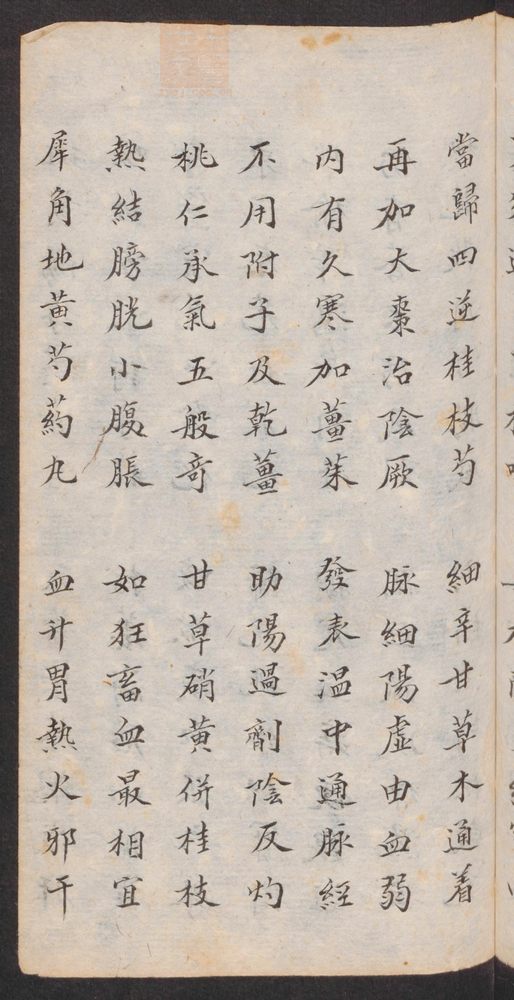 當歸四逆桂枝芍 細辛甘草木通着
再加大棗治陰厥 脉細陽虛由血弱
内有久寒加薑茱 發表温中通脉經
不用附子及乾薑 助陽過劑陰反灼
桃仁承氣五般竒 甘草硝黄併桂枝
熱結膀胱小腹脹 如狂畜血最相宜
犀角地黄芍藥丸 血汁胃熱火邪干